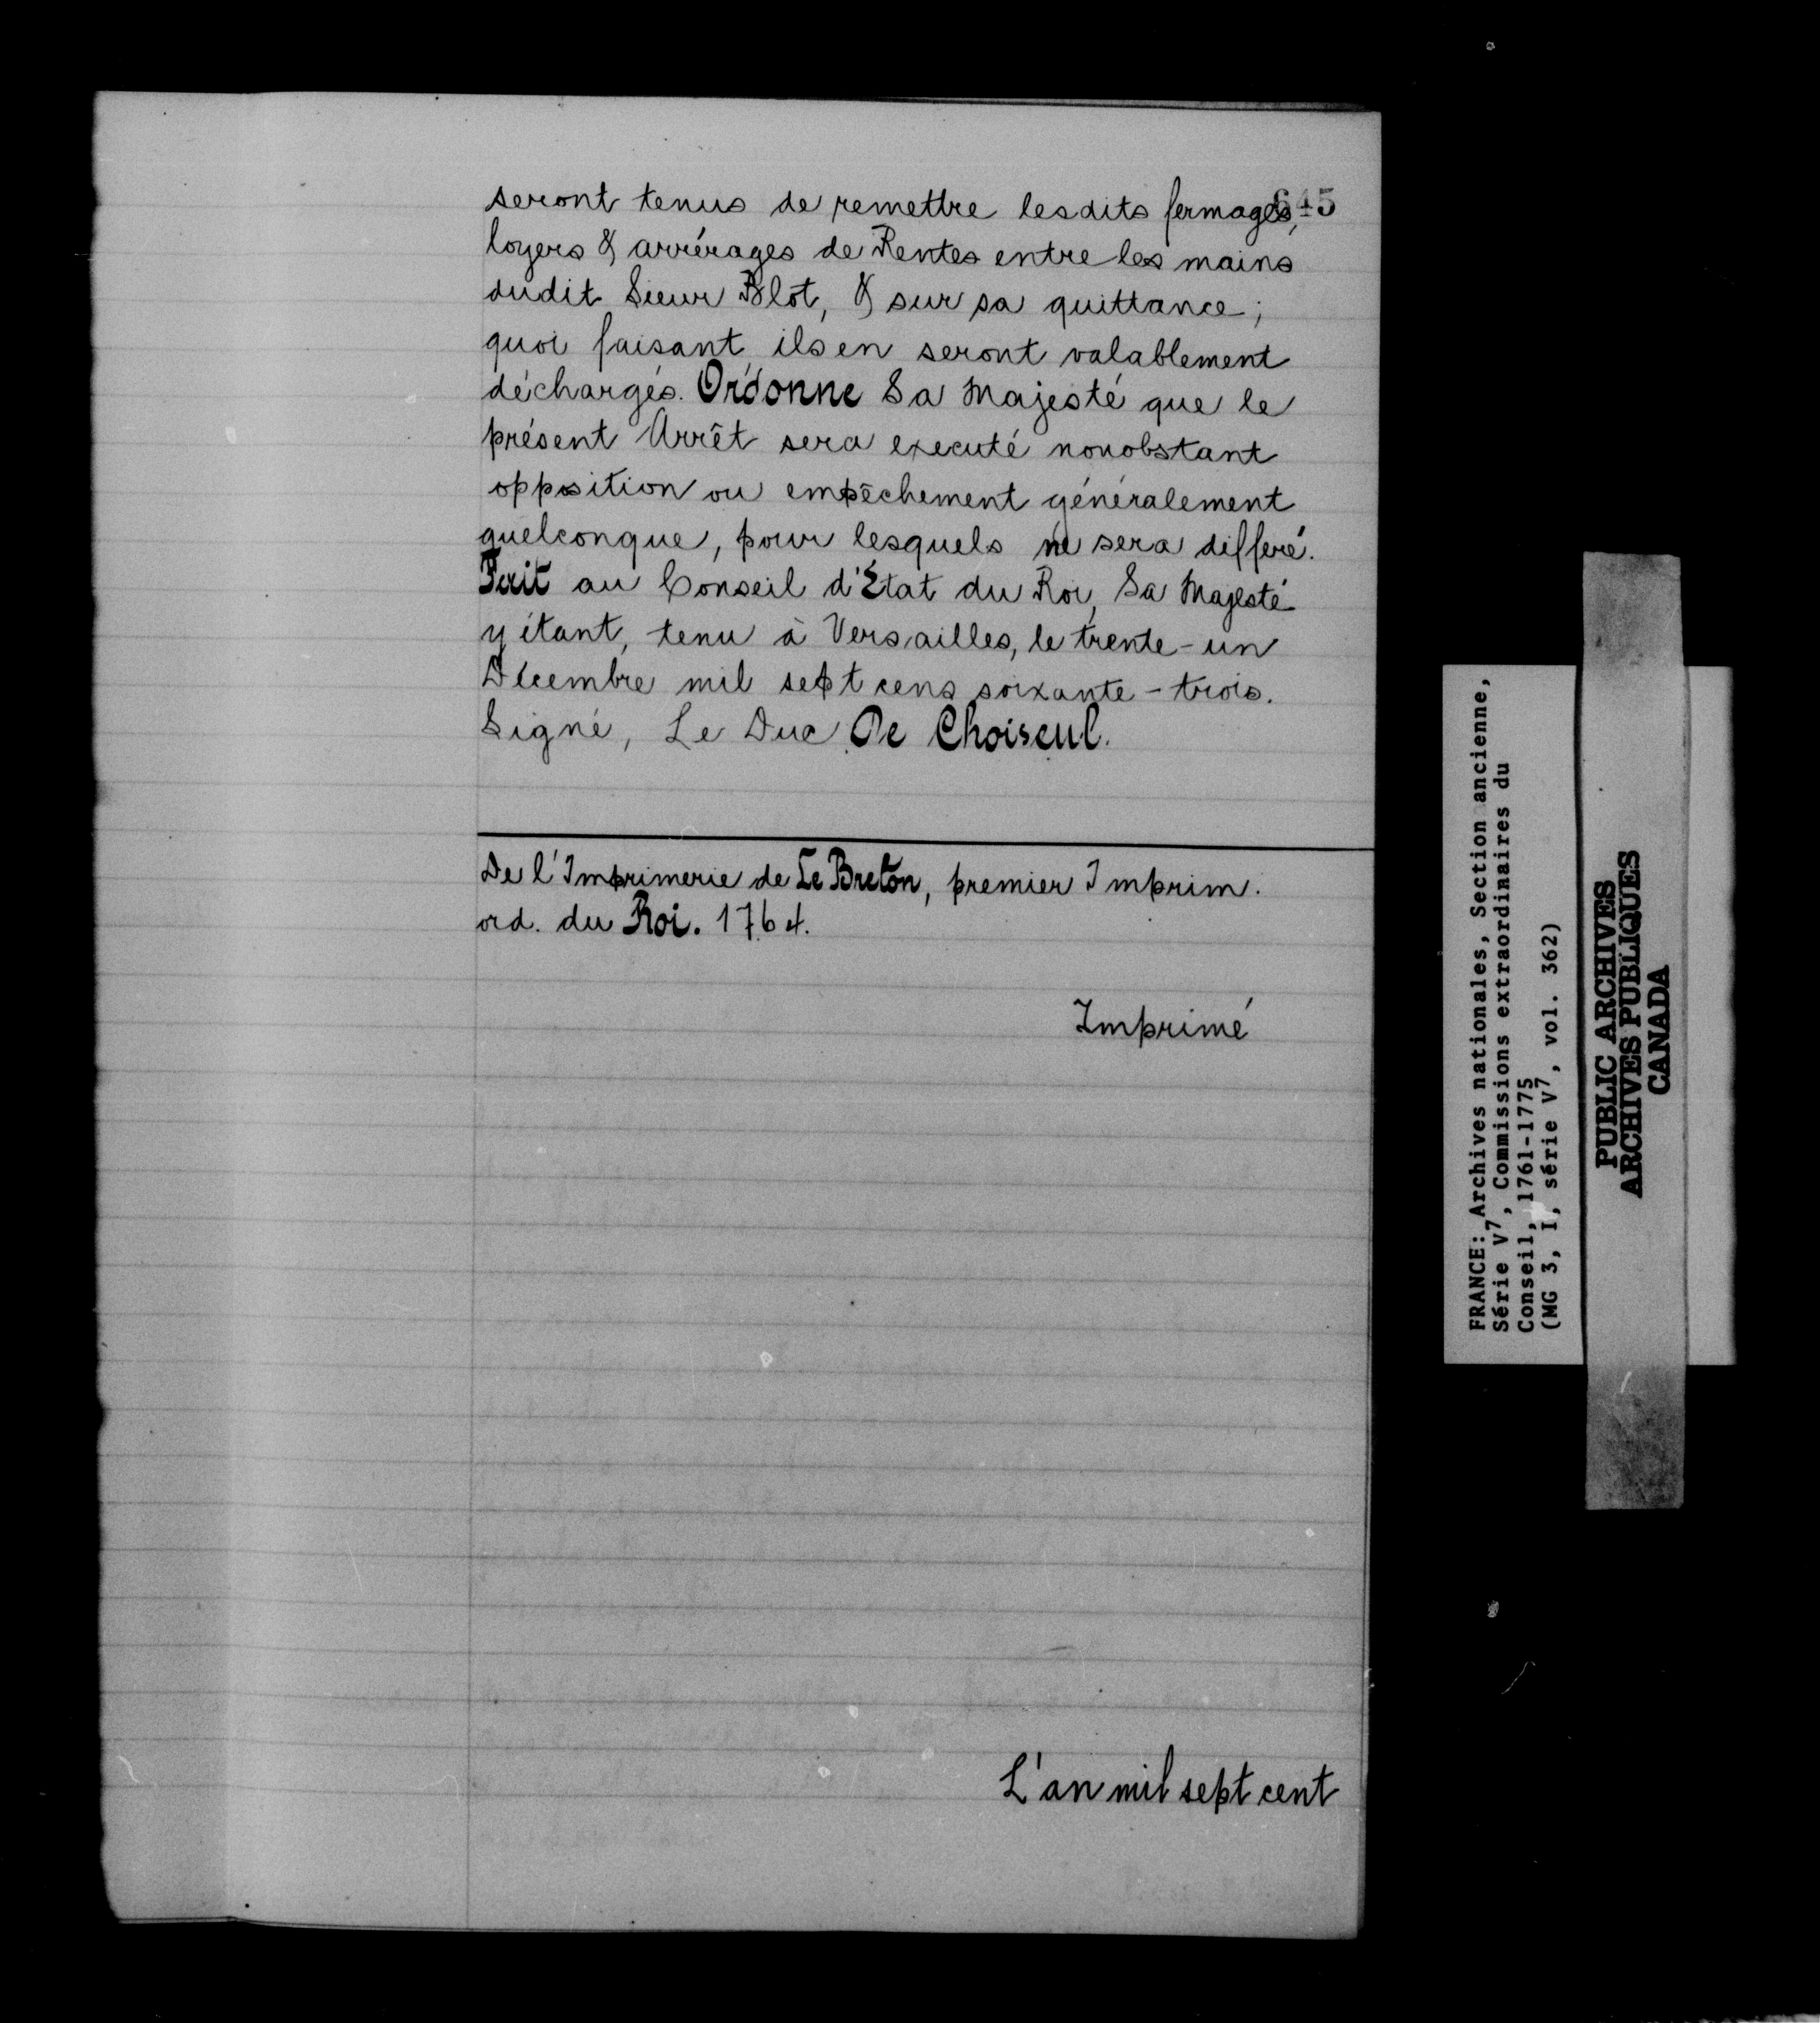 645
seront tenus de remettre lesdits fermages,
loyers & arrérages de Rentes entre les mains
dudit Sieur Blôt, & sur sa quittance ;
quoi faisant, ils en seront valablement
déchargés. Ordonne Sa Majesté que le
présent Arrêt sera executé nonobstant
opposition ou empêchement généralement
quelconque, pour lesquels ne sera différé.
Fait au Conseil d'État du Roi, Sa Majesté
y étant, tenu à Versailles, le trente-un
Décembre mil sept cens soixante-trois.
Signé, Le Duc De Choiseul.
De l'Imprimerie de Le Breton, premier Imprim.
ord. du Roi. 1764.
Imprimé
L'an mil sept cent
FRANCE: Archives nationales, Section ancienne,
Série V7, Commissions extraordinaires du
Conseil, 1761-1775
(MG 3, I, série V7, vol. 362)
PUBLIC ARCHIVES
ARCHIVES PUBLIQUES
CANADA